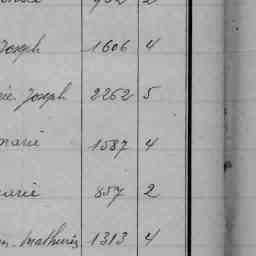 Joseph 1606 4
Joseph 2262 5
marie 1587 4
marie 857 2
Mathurin 1313 4